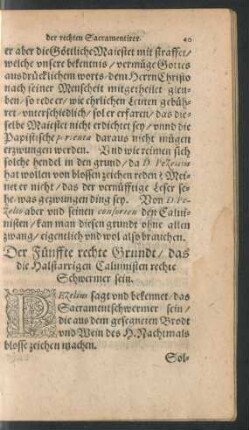 der rechten Sacramentirer. 40
er aber die Göttliche Maiestet mit straffet/
welche vnsere bekentnis / vermüge Gottes
ausdrücklichem worts / dem Herrn Christo
nach seiner Menscheit mitgetheilet gien-
den / so rede er / wie ehrlichen Leuten gebüh-
ret / vnterschiedlich / so er erfaren / das die-
selbe Maiestet nicht erdichtet sey / vnnd die
Papistische daraus nicht mügen
erzwungen werden. Vnd wie reimen sich
solche hendel in den grund / da D. Pezelius
hat wollen von blossen zeichen reden? Mei-
net er nicht / das der vernüfftige Leser se-
he / was gezwungen ding sey. Von D. Pe-
zelio aber vnd seinen consorten den Caluin-
nisten / kan man diesen grundt ohne allen
zwang / eigentlich vnd wol also brauchen.
Der Fünffte rechte Grundt / das
die Halstarrigen Caluinisten rechte
Schwermer sein.
PEzelius sagt vnd bekennet / das
Sacramentschwermer sein /
die aus dem gesegneten Brodt
vnd Wein des H. Nachtmals
blosse zeichen machen.
Sol-